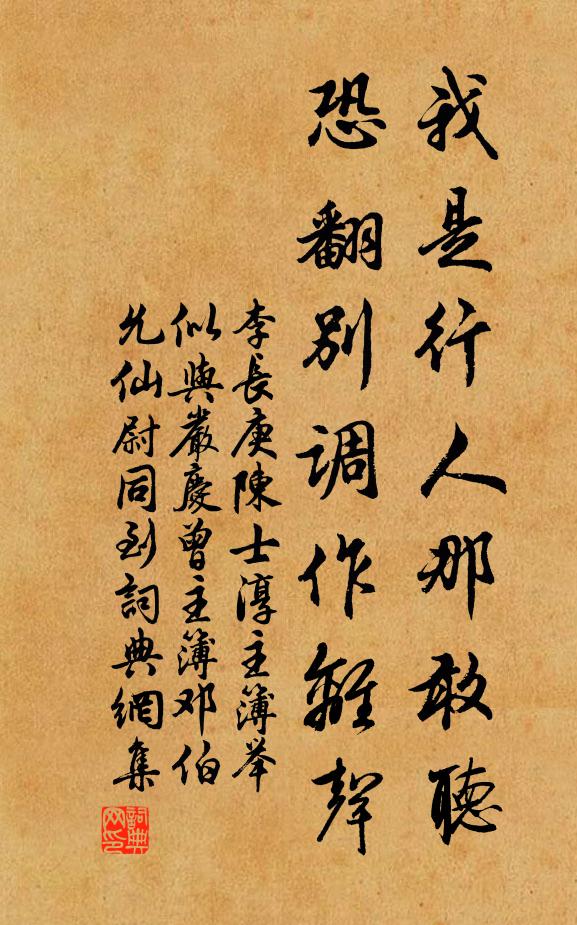 我是行人那敢聽
恐翻別調作離聲
李長庚陳士淳主簿举
似與嚴慶曾主簿邓伯
允仙尉同到詞典網集
詞典
网印